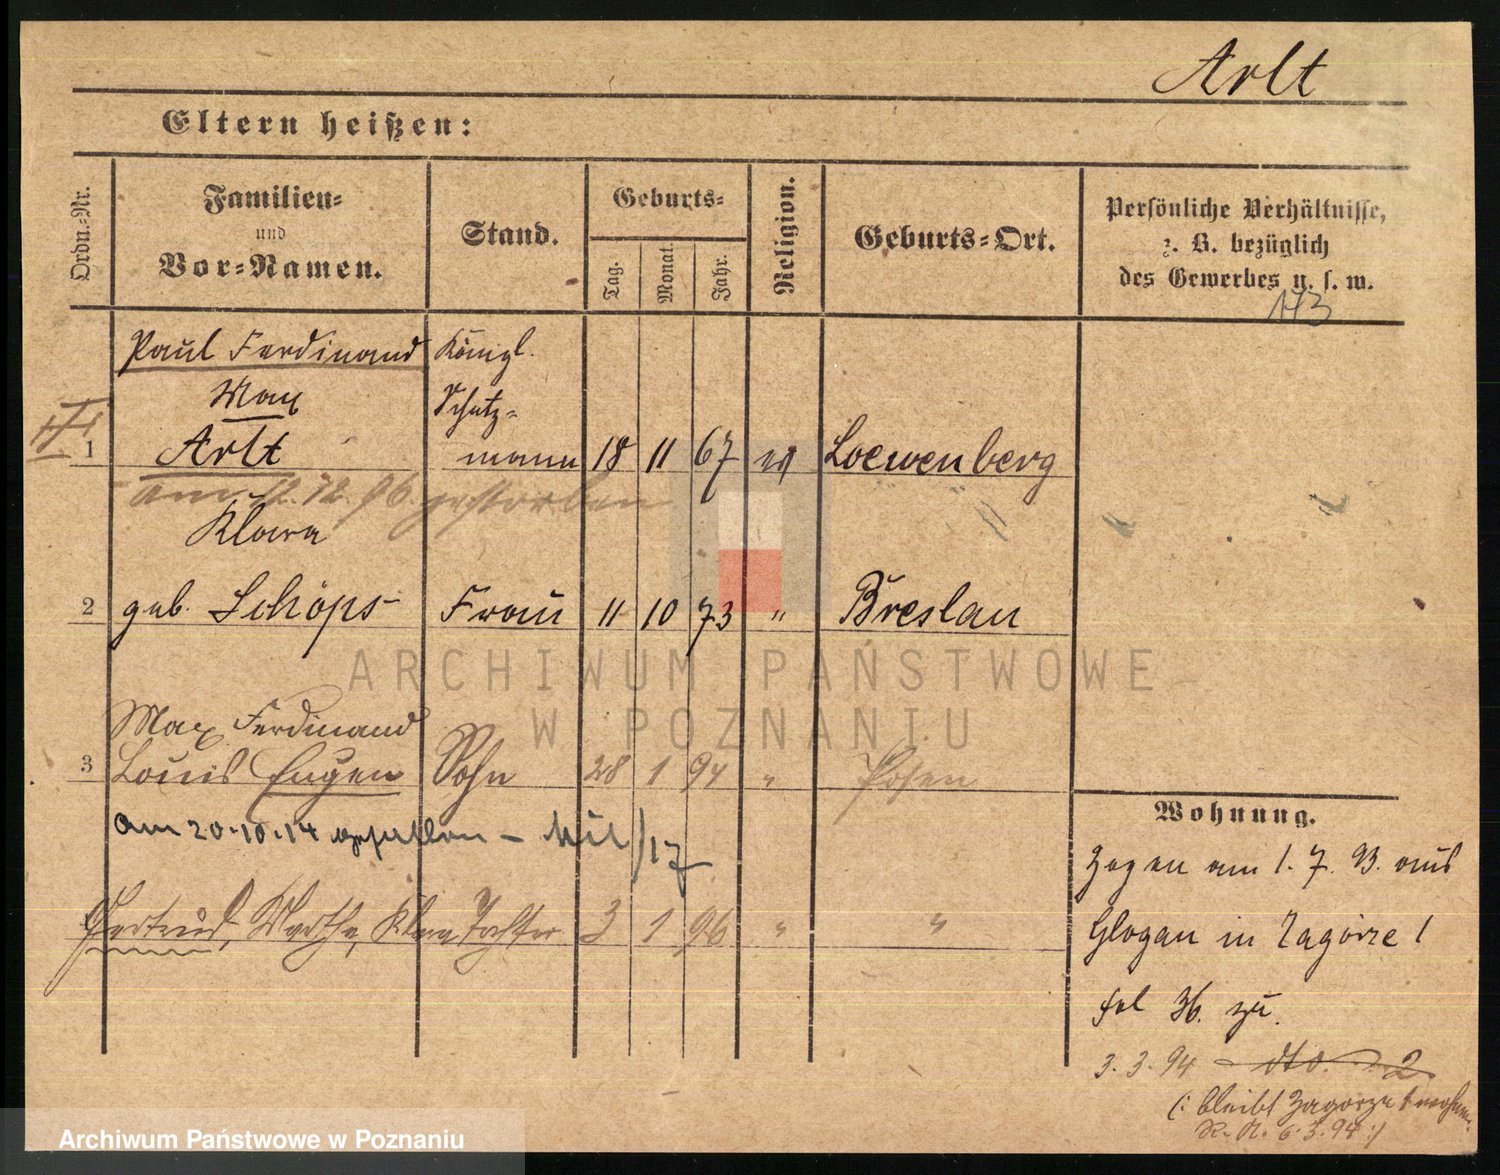 Arlt
Eltern heißen:
Ordn.-Nr.
Familien-
und
Vor-Namen.
Stand.
Geburts-
Tag.
Monat.
Jahr.
Religion.
Geburts-Ort.
Persönliche Verhältnisse,
z. B. bezüglich
des Gewerbes u. s. w.
173
Paul Ferdinand Königl.
Max Schutz-
1 Arlt mann 18 11 67 Loewenberg
am 12. 96. gestorben
Klara
2 geb. Schöps Frau 11 10 73 " Breslau
ARCHIWUM PAŃSTWOWE
W POZNANIU
Max Ferdinand
3 Louis Eugen Sohn 28 1 94 " Posen
am 20.10.14 gefallen - Mil/17
Gertrud, Marthe, Klara Tochter 3 1 96 " "
Wohnung.
Zogen am 1. 7. 93. aus
Glogau in Zagorze 1
36. zu.
3.3.94 dto. 2
(: bleibt Zagorze 1 wohnen
R. N. 6.3.94 :)
Archiwum Państwowe w Poznaniu